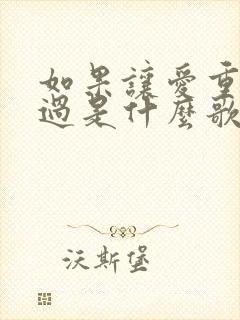 如果讓愛重
過是什麼歌
沃斯堡